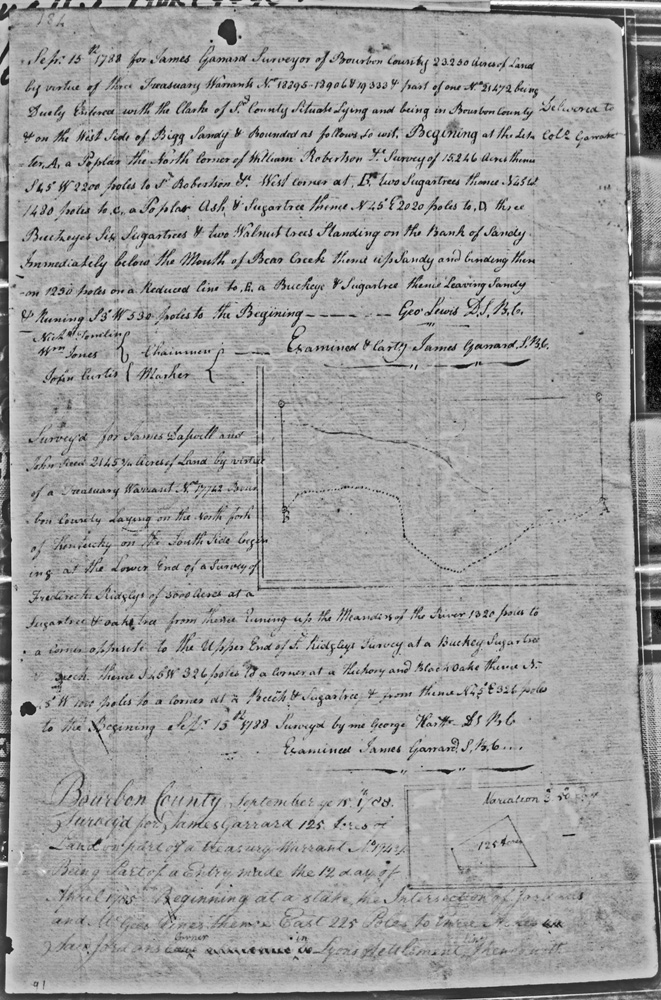 184
Sepr. 15th 1788 for James Garrard Surveyor of Bourbon County 23250 Acres of Land
by virtue of three Treasuary Warrants No. 18295-18906 & 19333 & part of one No. 21472 being
Duely Entered with the Clarke of Sd. County Situate Lying and being in Bourbon County
& on the West Side of Bigg Sandy & Bounded as follows, to wit, Begining at the Let-
Delivered to
Colo. Garrard
ter, A, a Poplar the North Corner of William Robertson Survey of 15246 Acres thence
S 45 W 2200 poles to Sd. Robertson West corner at, B, two Sugartrees thence N 45 W
1480 poles to, C, a Poplar Ash & Sugartree thence N 45° E 2020 poles to, D, three
Buckeyes Six Sugartrees & two Walnut trees Standing on the Bank of Sandy
Immediately below the Mouth of Bear Creek thence up Sandy and binding there
on 1230 poles on a Reduced line to, E, a Buckeye & Sugartree thence Leaving Sandy
& Runing S 5° W 530 poles to the Begining Geo. Lewis D.S.B.C.
Wm. Jones Chainmen
Examined & Certy. James Garrard. S.B.C.
John Curtis Marker
Survey'd for James and
John 2145 3/4 Acres of Land by virtue
of a Treasuary Warrant No. 17742 Bour
bon County Laying on the North fork
of Kentucky on the South Side begin
ing at the Lower End of a Survey of
Frederick Ridglys of 5000 Acres at a
Sugartree & oake tree from thence Runing up the Meanders of the River 1320 poles to
a corner opposite to the Upper End of Sd. Ridgleys Survey at a Buckey Sugartree
thence S 45 W 326 poles to a corner at a Hickory and Black oake thence N.
5° W poles to a corner at a Beech & Sugartree, & from thence N 45° E 326 poles
to the Begining Sepr. 15th 1788 Survey'd by me George DS B C
Examined James Garrard. S.B.C.
Bourbon County September ye 15th 1788.
Variation
Survey'd for James Garrard 125 Acres of
Land on part of a treasury Warrant No.
125 Acres
Being Part of a Entry made the 12 day of
April Beginning at a stake the Intersection of
and McGees lines thence East 225 Poles to three
corner in
Settlement line thence
91